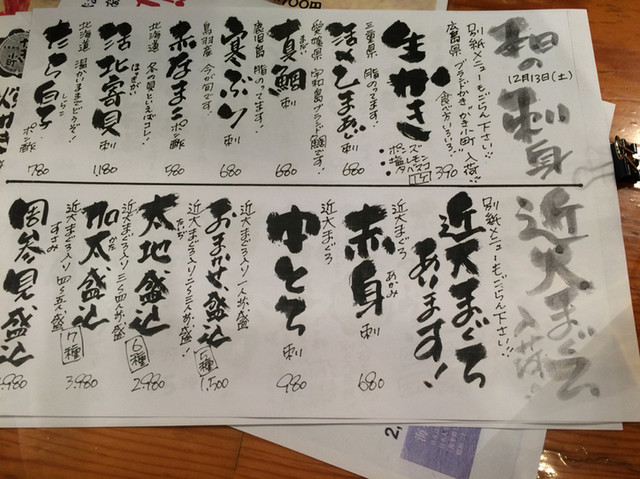 12月13日(土)
の刺身
別紙メニューもごらん下さい!!
広島県 ブランドかき、かき小町 入荷!!
食べ方いろいろ!
生かき
・ポン酢
・塩
・レモン
・タバスコ
1コ
390
三重県 脂のってます!
活〆しまあじ 刺
680
愛媛県 宇和島ブランド鯛です!
真鯛 刺
まだい
680
鹿児島 脂のってます!
寒ぶり 刺
680
鳥羽産 今が旬です!
赤なまこ ポン酢
580
北海道 冬の貝といえばコレ!
活北寄貝 刺
ほっきがい
1,180
北海道 温かいままでどうぞ!
たら白子 ポン酢
しらこ
780
近大まぐろ入荷!!
別紙メニューもごらん下さい!!
近大まぐろ
あります!
近大まぐろ
赤身 刺
あかみ
680
近大まぐろ
中とろ 刺
980
近大まぐろ入り 一人分、盛
おまかせ盛込
5種
1,500
近大まぐろ入り 二〜三人分、盛!
太地盛込
たいぢ
6種
2,980
近大まぐろ入り 三〜四人分、盛
加太盛込
かだ
7種
3,980
近大まぐろ入り 四〜五人、盛
周参見盛込
すさみ
,980
2,